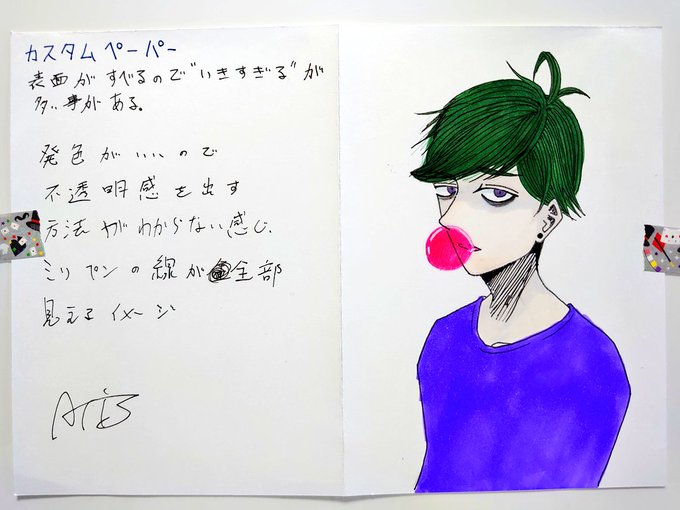 カスタムペーパー
表面がすべるので"いきすぎる"が
多い事がある。
発色がいいので
不透明感を出す
方法がわからない感じ。
ミリペンの線が全部
見えるイメージ